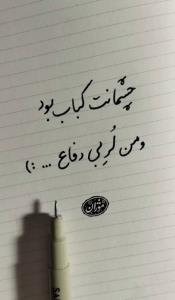 چشمانت کباب بود
ومن لُر بی دفاع ... :)